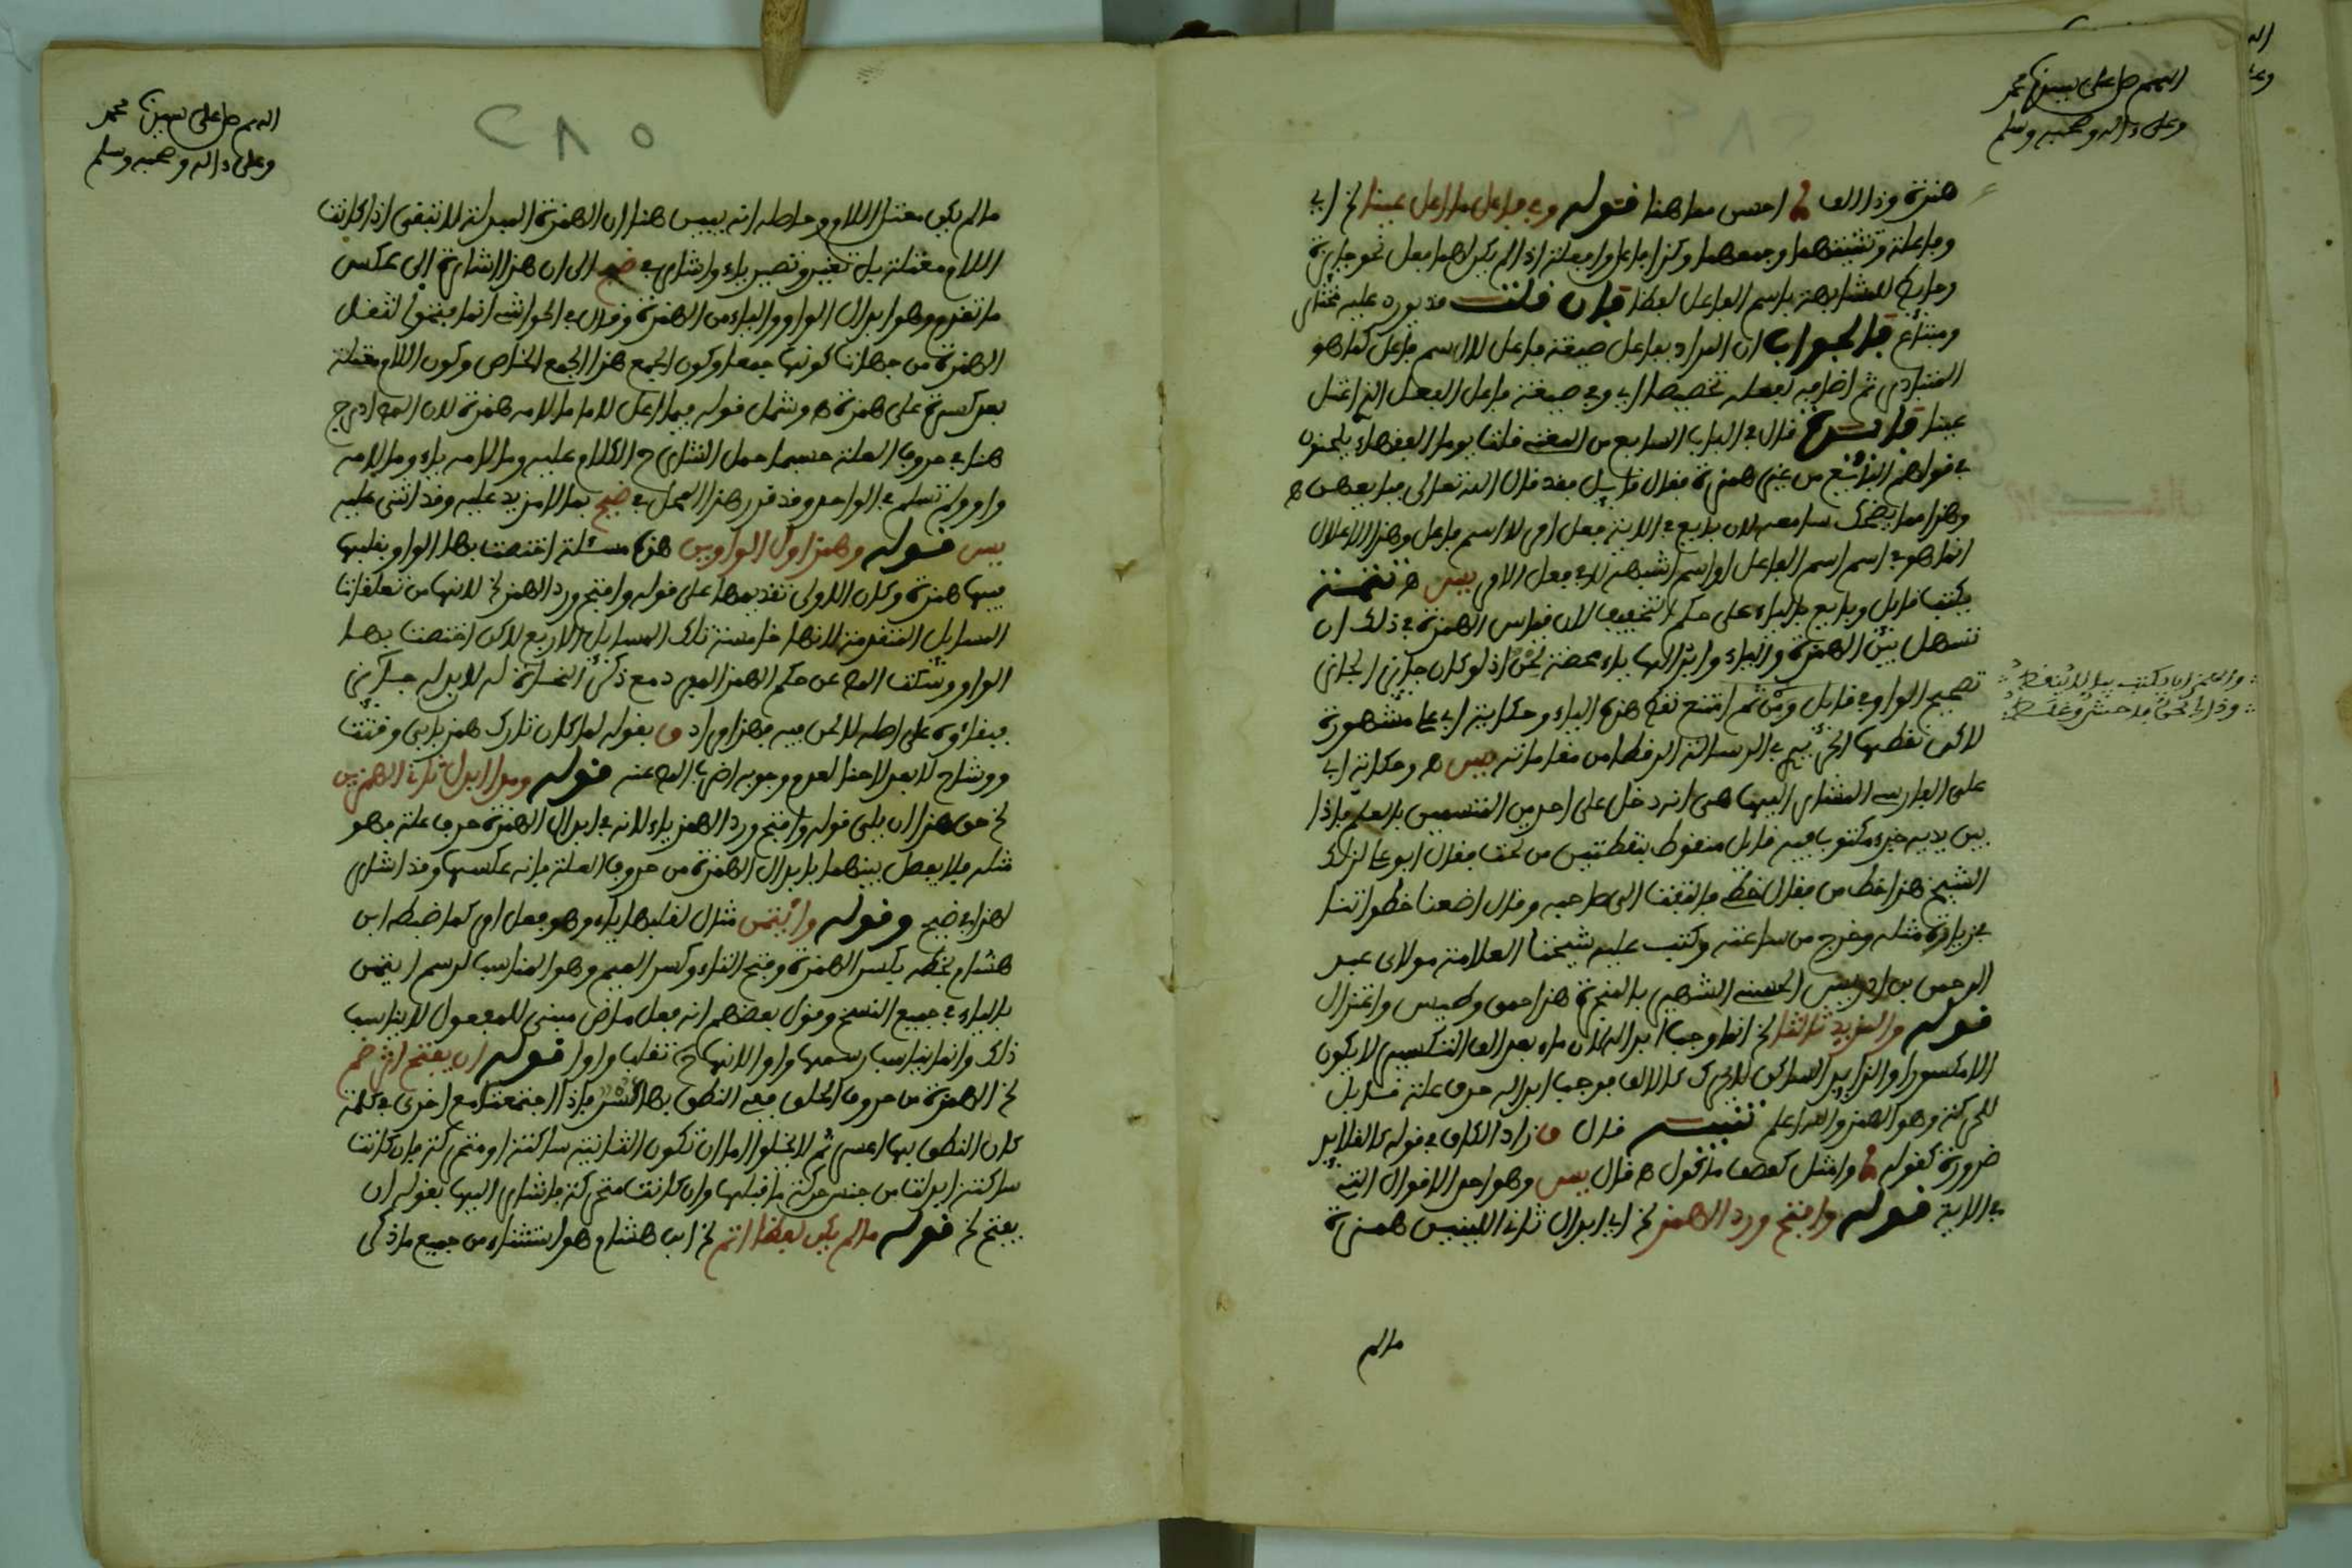 اللهم صل على سيدنا محمد
وعلى ءاله وصحبه وسلم
همزة وذا الفا احسن مما هنا قوله وفي فاعل ما اعل عينا لخ اي
وفاعلة وتثنيتهما وجمعهما وكذا فاعل وفاعلة اذا لم يكن لهما فعل نحو جايزة
وجايز للمشابهة باسم الفاعل لفظا فان قلت قد يورد عليه مختار
ومبتاع فالجواب ان المراد بفاعل صيغة فاعل لا اسم فاعل كما هو
المتبادر ثم اضافه لفعله تخصيصا اي وفي صيغة فاعل الفعل الذي اعتل
عينا فايدة قال في الباب السابع من المغني قلنا يوما الفقهاء يلحنون
في قولهم البايع من غير همزة فقال قايل فقد قال الله تعالى فبايعهن ه
وهذا مما يضحك سامعه لان بايع في الاية فعل امر لا اسم فاعل وهذا الاعلال
انما هو في اسم الفاعل او اسم اشبهه لا في فعل الامر يس ه تتمة
يكتب قايل وبايع بالياء على حكم التخفيف لان قياس الهمزة في ذلك ان
تسهل بين الهمزة والياء وابدالها ياء محضة لحن اذ لو كان جايزا لجاز
تصحيح الواو في قايل ومن ثم امتنع نقط هذه الياء وحكاية ابي علي مشهورة
لاكن نقطها الحريري في الرسالة الرقطا من مقاماته يس ه وحكاية ابي
علي الفارسي المشار اليها هي انه دخل على احد من المتسمين بالعلم فاذا
بين يديه جزء مكتوب فيه قايل منقوط بنقطتين من تحت فقال ابو علي لذلك
الشيخ هذا خط من فقال خطي فالتفت الى صاحبه وقال اضعنا خطواتنا
في زيارة مثله وخرج من ساعته وكتب عليه شيخنا العلامة مولاي عبد
الرحمن بن ادريس الحسني الشهير بالمنجرة هذا حمق وطيس واعتزال
قوله والمزيد ثالثا لخ انما وجب ابداله لان ما بعد الف التكسير لا يكون
الا مكسورا والزايد الساكن لا يحرك كالالف فوجب ابداله حرف علة قابل
للحركة وهو الهمز والله اعلم تنبيه قال ق زاد الكاف في قوله كالقلايد
ضرورة كقوله وامثل كعصف ماكول ه قال يس وهو احد الاقوال التي
في الاية قوله وافتح ورد الهمز لخ اي ابدال ثاني اللينين همزة
والهمز ان يكتب بيا لا تنقط
وذا في الحق فاحش وغلط
مالم
اللهم صل على سيدنا محمد
وعلى ءاله وصحبه وسلم
٢٨٥
مالم يكن معتل اللام وحاصله انه يبين هنا ان الهمزة المبدلة لا تبقى اذا كانت
اللام معتلة بل تغير وتصير ياء واشار في ضيح الى ان هذا اشارة الى عكس
ما تقدم وهو ابدال الواو والياء من الهمزة وقال في الحواشي انما فتحوا لثقل
الهمزة من جهات كونها جمعا وكون الجمع هذا الجمع الخاص وكون اللام معتلة
بعد كسرة على همزة ه وشمل قوله فيما اعل لاما ما لامه همزة لان المص ادرج
هنا في حروف العلة حسبما حمل الشارح الكلام عليه وما لامه ياء وما لامه
واو ولم تسلم في الواحد وقد قرر هذا المحل في ضيح بما لا مزيد عليه وقد اثنى عليه
يس قوله وهمزا اول الواوين هذه مسئلة اختصت بها الواو بقلبها
فيها همزة وكان الاولى تقديمها على قوله وافتح ورد الهمز لخ لانها من تعلقات
المسايل المتقدمة لانها خامسة تلك المسايل الاربع لاكن اختصت بها
الواو وسكت المص عن حكم الهمز المفرد مع ذكر النحاة له لابداله جوازا في
فيقراوه على اصله لا لحن فيه فهذا مراد ق بقوله لما كان تارك همز بابي وقتت
ووشاح لا يعد لاحنا لعدم وجوبه اضرب المص عنه قوله ومدا ابدل ثاني الهمزين
لخ حق هذا ان يلي قوله وافتح ورد الهمز ياء لانه في ابدال الهمزة حرف علة فهو
مثله فلا يفصل بينهما بابدال الهمزة من حروف العلة فانه عكسها وقد اشار
لهذا في ضيح وقوله وائتمن مثال لقلبها ياء وهو فعل امر كما ضبطه ابن
هشام بخطه بكسر الهمزة وفتح التاء وكسر الميم وهو المناسب لرسم ايتمن
بالياء في جميع النسخ وقول بعضهم انه فعل ماض مبني للمفعول لا يناسب
ذلك وانما يناسب رسمها واوا لانها ح تقلب واوا قوله ان يفتح اثر ضم
لخ الهمزة من حروف الحلق ففي النطق بها عسر فاذا اجتمعت مع اخرى في كلمة
كان النطق بها اعسر ثم لا يخلو اما ان تكون الثانية ساكنة او متحركة فان كانت
ساكنة ابدلت من جنس حركة ما قبلها وان كانت متحركة فاشار اليها بقوله ان
يفتح لخ قوله مالم يكن لفظا اتم لخ ابن هشام هو استثناء من جميع ما ذكر